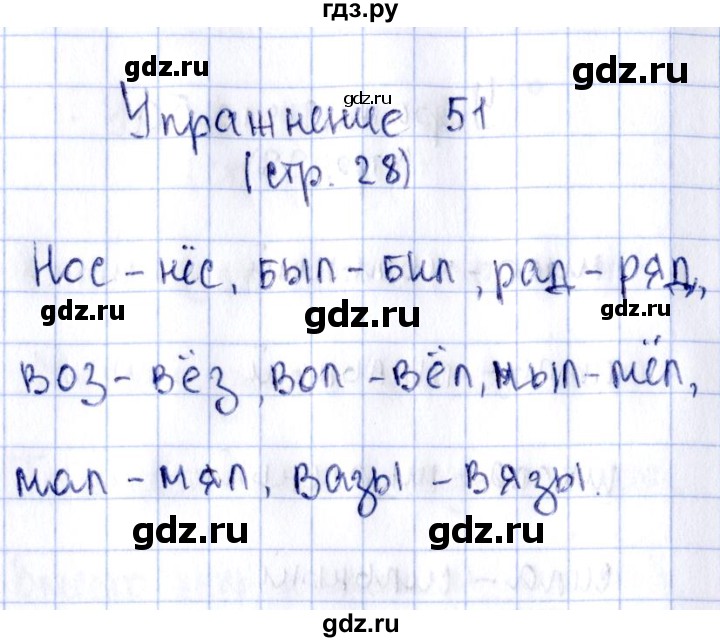 гдз.ру
gdz.ru
gdz.ru
gdz.ru
Упражнение 51
(стр. 28)
Нос – нёс, был – бил, рад – ряд,
gdz.ru
gdz.ru
gdz.ru
воз – вёз, вол – вёл, мыл – мёл,
мал – мял, вазы – вязы.
gdz.ru
gdz.ru
gdz.ru